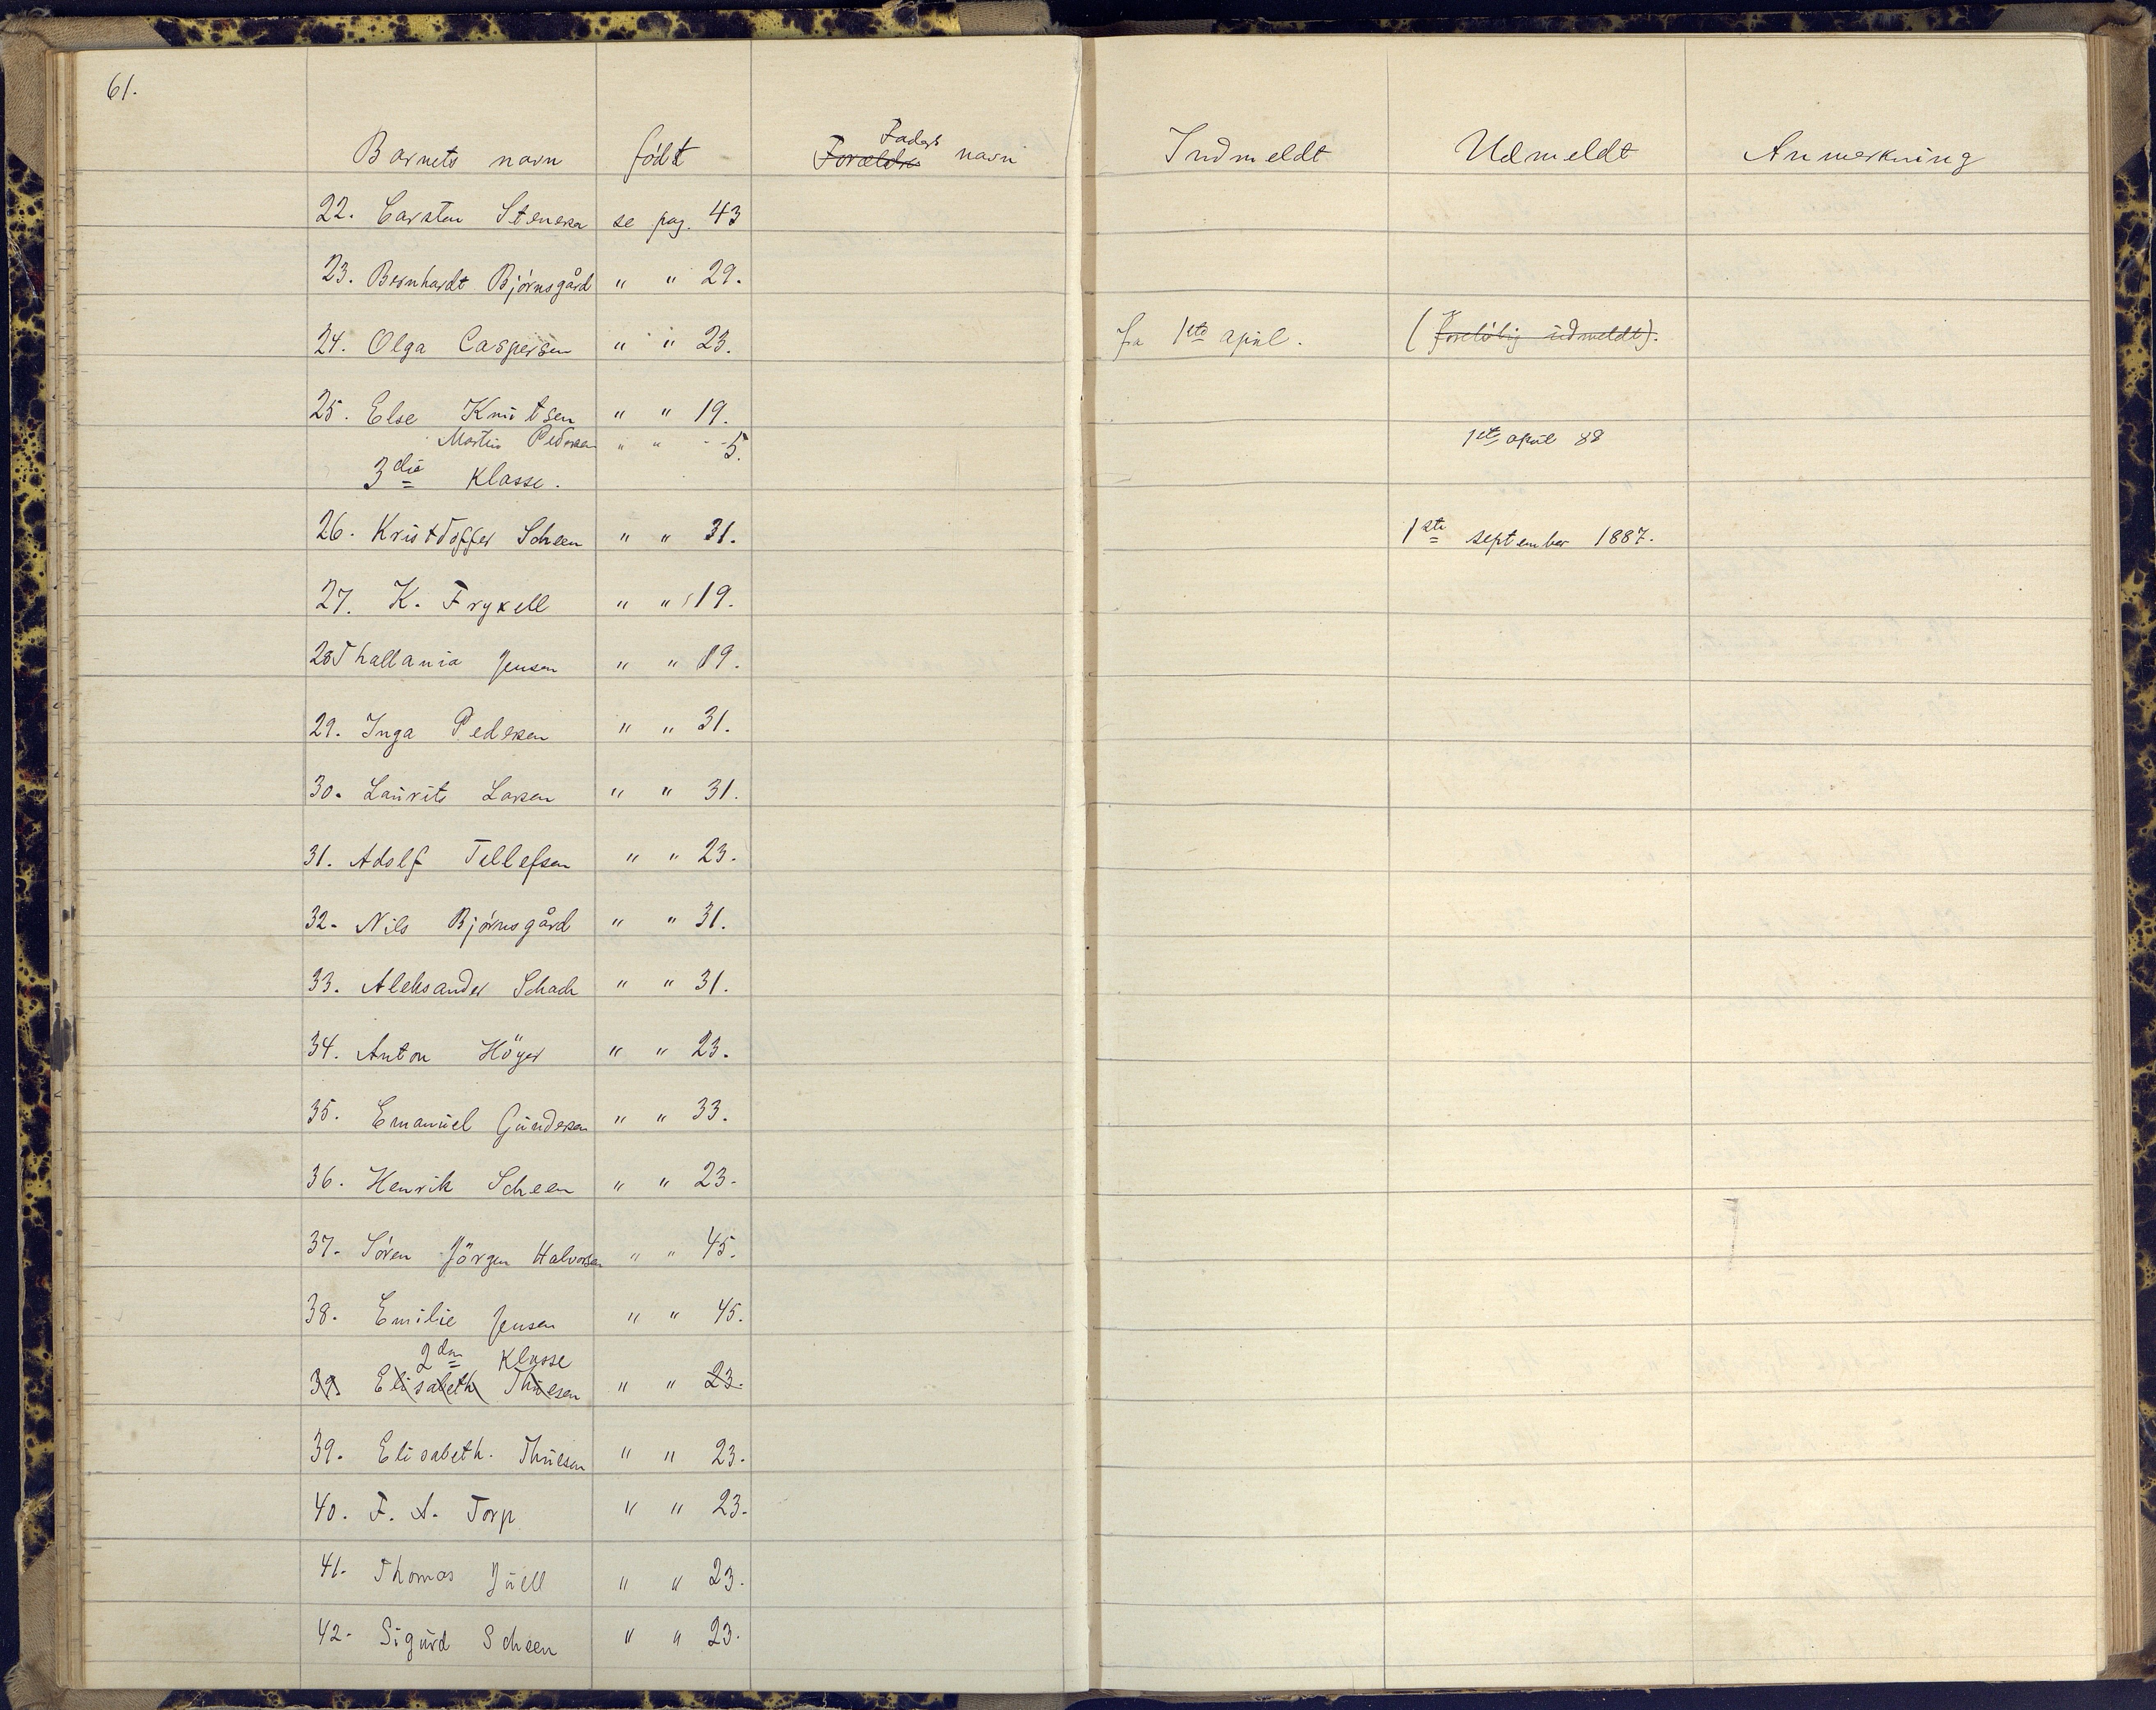 61.
Barnets navn født ~~Forældr~~ Faders navn Indmeldt Udmeldt Anmerkning
22. Carsten Stenersen se pag. 43
23. Bernhardt Bjørnsgård " " 29.
24. Olga Caspersen " " 23. fra 1ste april. (~~foreløbig udmeldt~~).
25. Else Knutsen " " 19.
Martin Pedersen " " 5. 1ste april 88
3die Klasse.
26. Kristoffer Scheen " " 31. 1ste september 1887.
27. K. Fryxell " " 19.
28 Thallania Jensen " " 19.
29. Inga Pedersen " " 31.
30. Laurits Larsen " " 31.
31. Adolf Tellefsen " " 23.
32. Nils Bjørnsgård " " 31.
33. Aleksander Schach " " 31.
34. Anton Höyer " " 23.
35. Emanuel Gundersen " " 33.
36. Henrik Scheen " " 23.
37. Søren Jörgen Halvorsen " " 45.
38. Emilie Jensen " " 45.
2den Klasse
~~39 Elisabeth Thuesen~~ " " ~~23.~~
39. Elisabeth. Thuesen " " 23.
40. F. A. Torp " " 23.
41. Thomas Juell " " 23.
42. Sigurd Scheen " " 23.